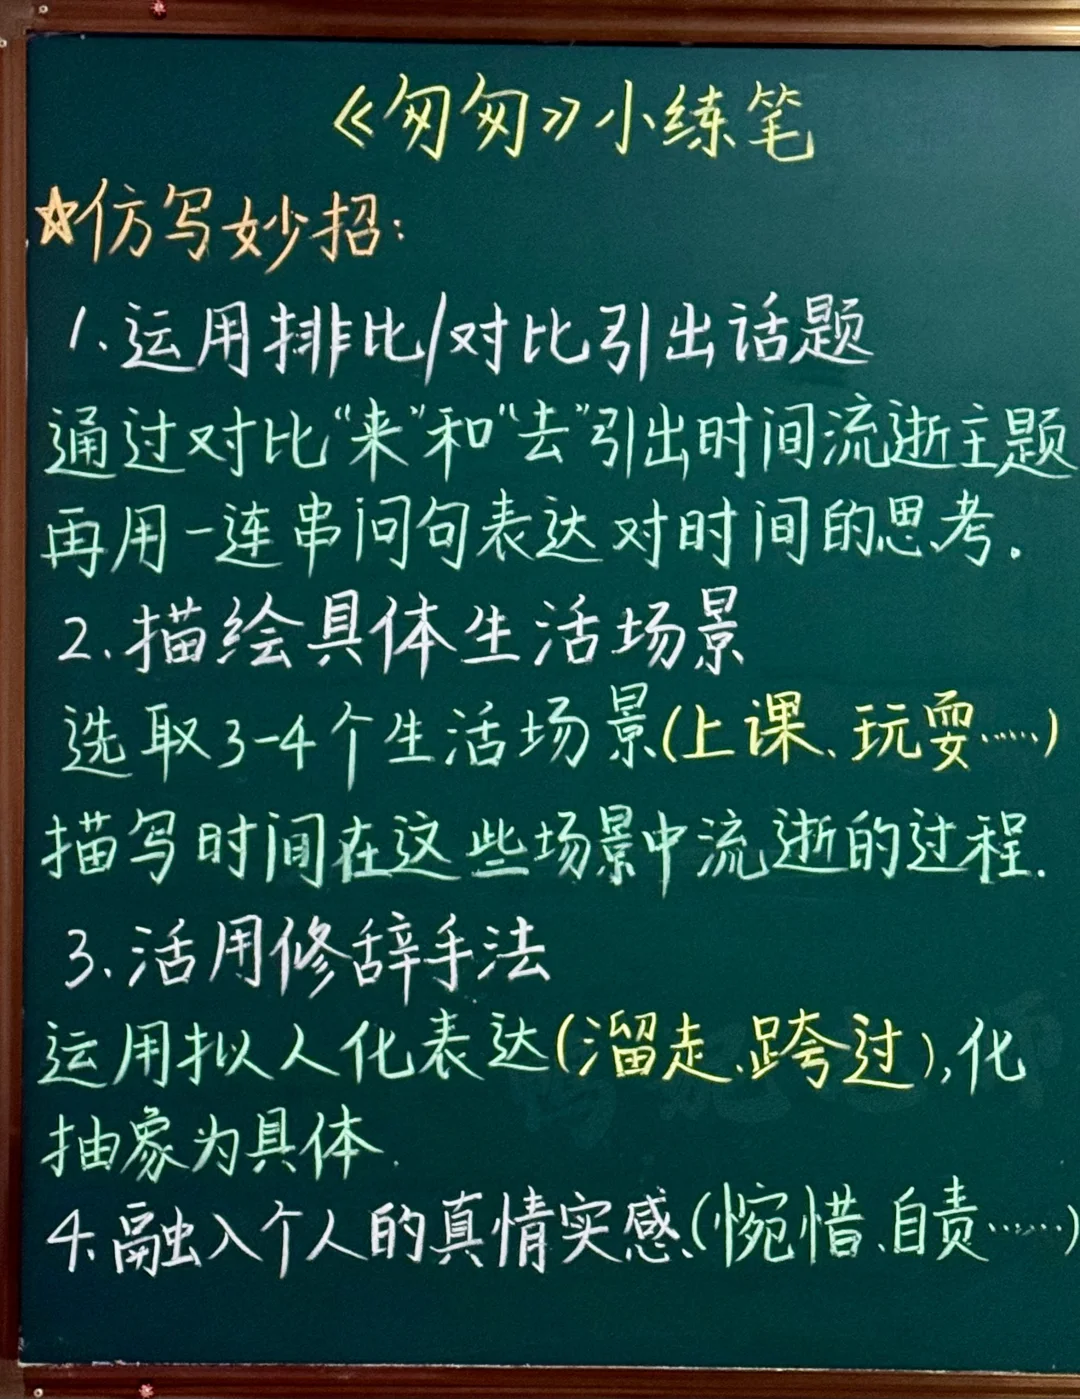 《匆匆》小练笔
☆仿写妙招：
1.运用排比/对比引出话题
通过对比“来”和“去”引出时间流逝主题
再用一连串问句表达对时间的思考.
2.描绘具体生活场景
选取3-4个生活场景(上课、玩耍……)
描写时间在这些场景中流逝的过程.
3.活用修辞手法
运用拟人化表达(溜走、跨过),化
抽象为具体.
4.融入个人的真情实感(惋惜、自责……)